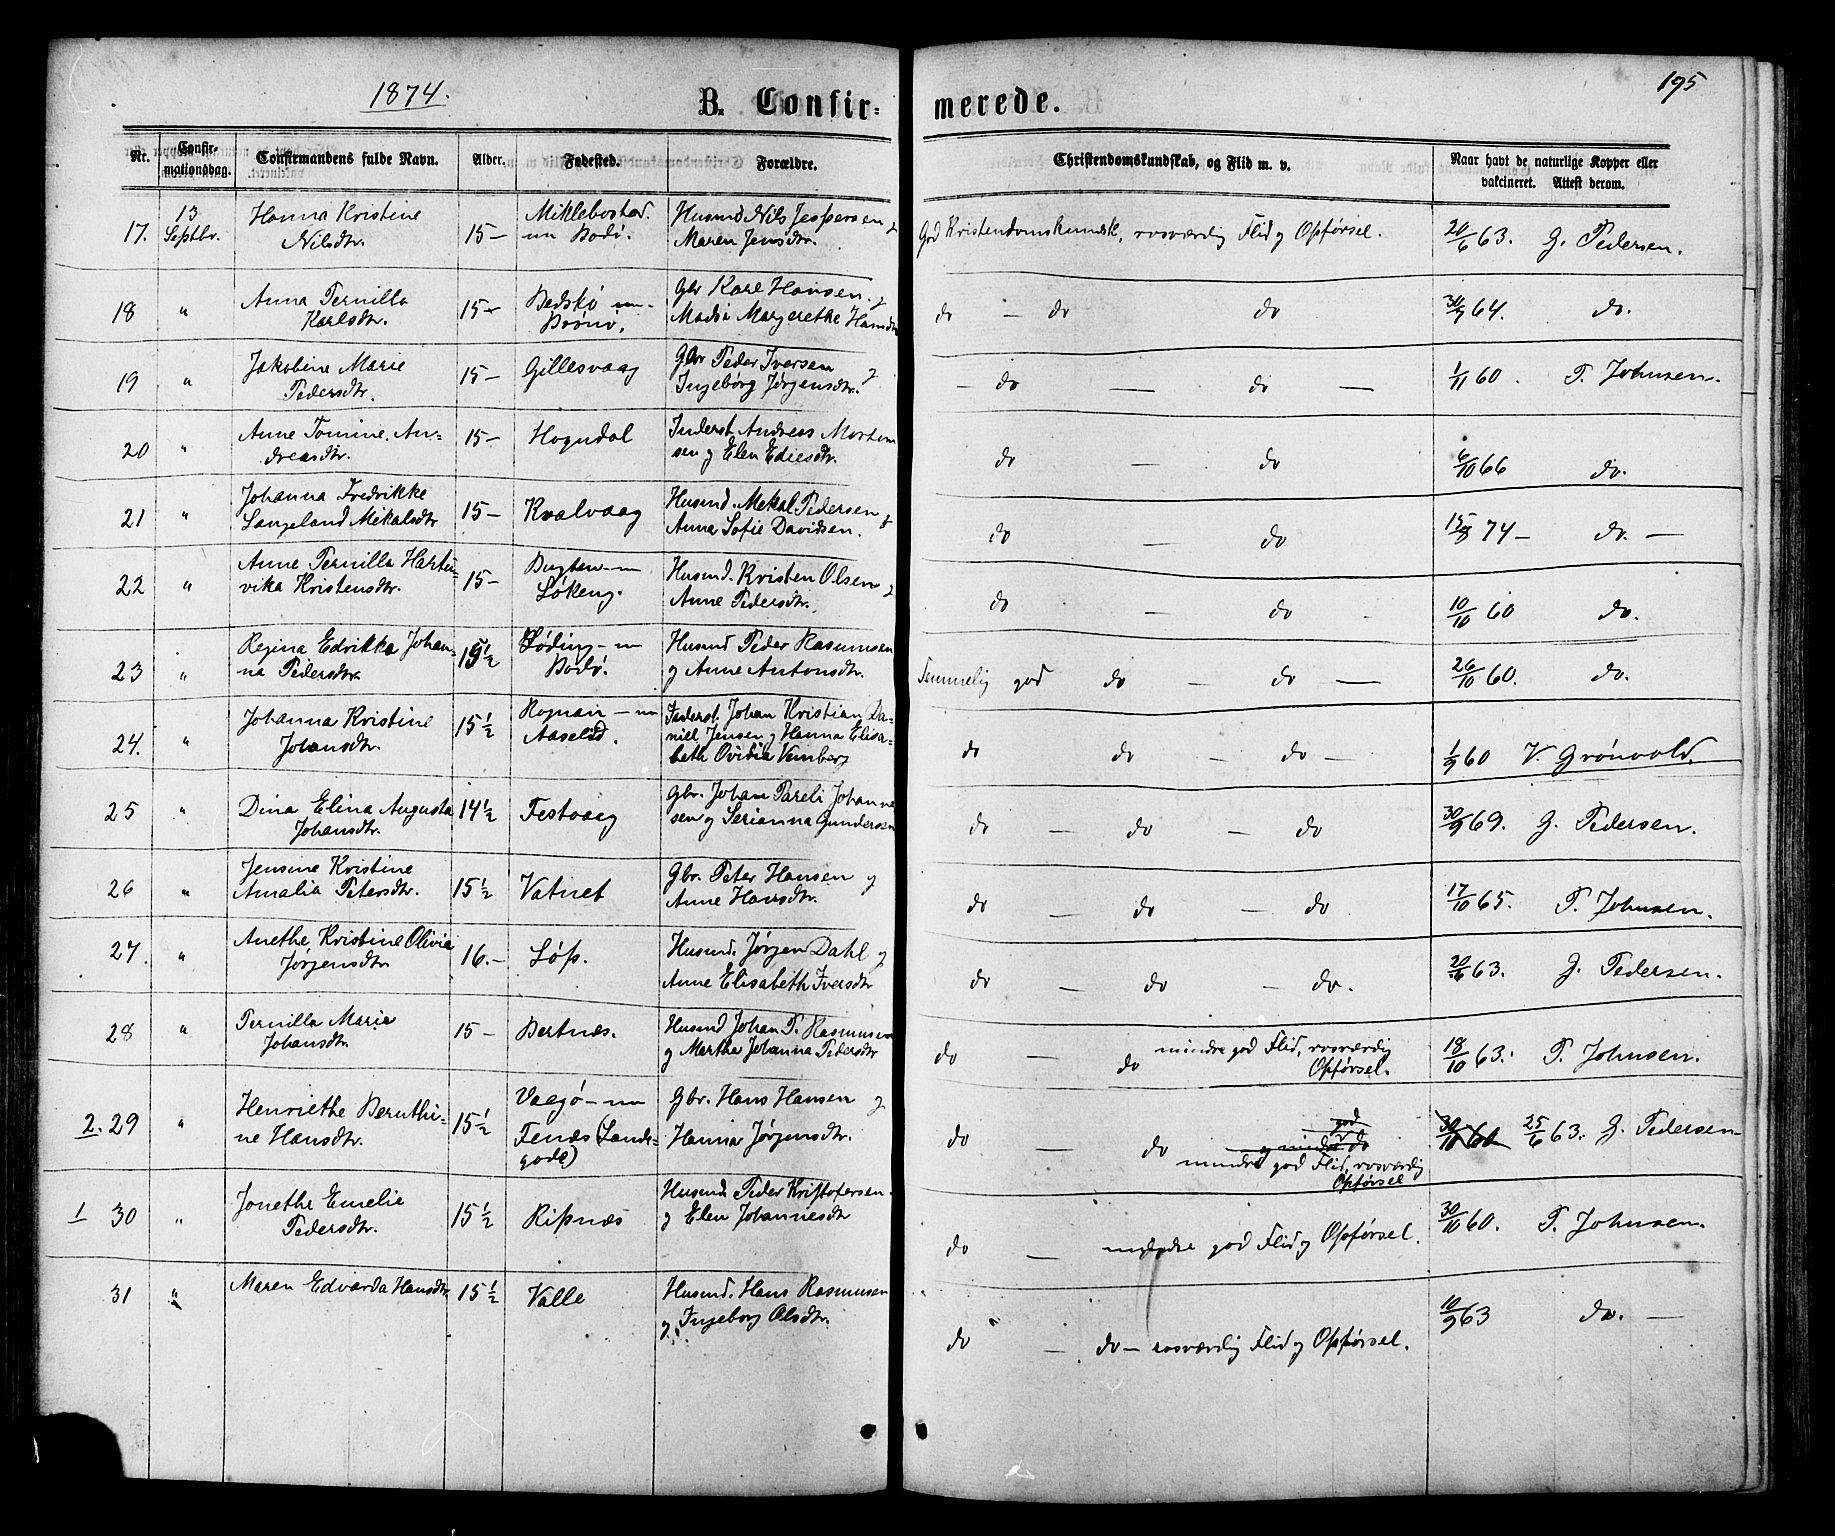 1874.
B. Confir-
merede.
195
Nr.
Confir-
mationsdag.
Confirmandens fulde Navn.
Alder.
Fødested.
Forældre.
Christendomskundskab, og Flid m. v.
Naar havt de naturlige Kopper eller
vakcineret. Attest derom.
17. 13 Septbr. Hanna Kristine
Nilsdtr. 15- Miklebostad
Bodø. Husmd Nils Jespersen og
Maren Jensdtr. God Kristendomskundsk, rosværdig Flid og Opførsel. 20/6 63. G. Pedersen.
18 " Anna Pernilla
Karlsdtr. 15- Gbr Karl Hansen og
Madsa Margrethe Hansdtr do - do do 30/9 64. do.
19 " Jakobine Marie
Pedersdtr. 15- Gillesvaag Gbr Peder Iversen og
Ingeborg Jørgensdtr. - do - do - 1/11 60. P. Johnsen.
20 " Anne Tomine An-
dreasdtr. 15- Hogndal Inderst Andreas Morten
sen og Elen Ediesdtr. do - do 6/10 66 do.
21 " Johanna Fredrikke
Langeland Mikalsdtr 15- Kvalvaag Husmd. Mekal Pedersen og
Anna Sofie Davidsen. do - do 15/8 74- do. -
22 " Anne Pernilla Hartu-
vika Kristensdtr. 15-
Løkeng. Husmd. Kristen Olsen og
Anne Pedersdtr. do - do 10/10 60 do.
23 " Regina Edrikka Johan-
na Pedersdtr. 15 1/2 Løding
Bodø. Husmd Peder Rasmusen
og Anne Antonsdtr. Temmelig god do - do - 26/10 60. do.
24. " Johanna Kristine
Johansdtr. 15 1/2 Rognan
Inderst. Johan Kristian Da-
niel Jensen og Hanna Elisa-
beth Ovidia do do - do - 1/9 60 V. Grønvold.
25 " Dina Elina Augusta
Johansdtr. 14 1/2 Festvaag Gbr. Johan Pareli Johanne
sen og Serianna Gundersen do - do - do 30/9 69. G. Pedersen.
26 " Jensine Kristine
Amalia Petersdtr. 15 1/2 Vatnet Gbr. Peter Hansen og
Anne Hansdtr. do - do - do 17/10 65. P. Johnsen.
27. " Anethe Kristine Olivia
Jørgensdtr 16.- Løp. Husmd. Jørgen Dahl og
Anne Elisabeth Iversdtr do - do - do. 20/6 63. G. Pedersen.
28 " Pernilla Maria
Johansdtr. 15- Bertnæs. Husmd Johan P. Rasmusen
og Martha Johanna Pedersdtr do - do mindre god Flid, rosværdig
Opførsel. 18/10 63. P. Johnsen.
2. 29 " Henriethe Beruthi-
ne Hansdtr. 15 1/2 Vaagø
Fenæs (Lande-
gode) Gbr. Hans Hansen og
Hanna Jørgensdtr. do - do god
og mindre do
mindre god Flid, rosværdig
Opførsel 30/10 60 25/6 63. G. Pedersen-
1 30 " Jonethe Emelie
Pedersdtr. 15 1/2 Ripnæs Husmd. Peder Kristofersen
og Elen Johannesdtr do - mindre god Flid og Opførsel. 30/10 60. P. Johnsen.
31 " Maren Edvarda Hansdtr 15 1/2 Valle Husmd. Hans Rasmusen
og Ingeborg Olsdtr. do - do - rosværdig Flid og Opførsel. 10/9 63 do. -